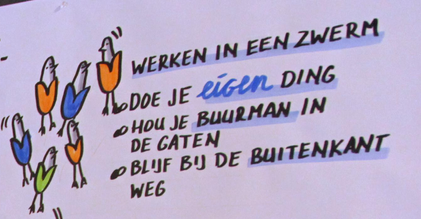 WERKEN IN EEN ZWERM
DOE JE eigen DING
HOU JE BUURMAN IN
DE GATEN
BLIJF BIJ DE BUITENKANT
WEG